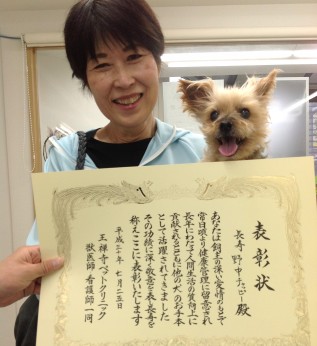 表彰状
長寿 野中たごー殿
あなたは飼主の深い愛情のもとで
常日頃より健康管理に留意され
長年にわたる人間生活の貢献上に
貢献されるとともに他の犬のお手本
として活躍されてきました
その功績に深く敬意を表し長寿を
称えここに表彰いたします
平成二六年七月二五日
王禅寺ペットクリニック
獣医師 看護師一同